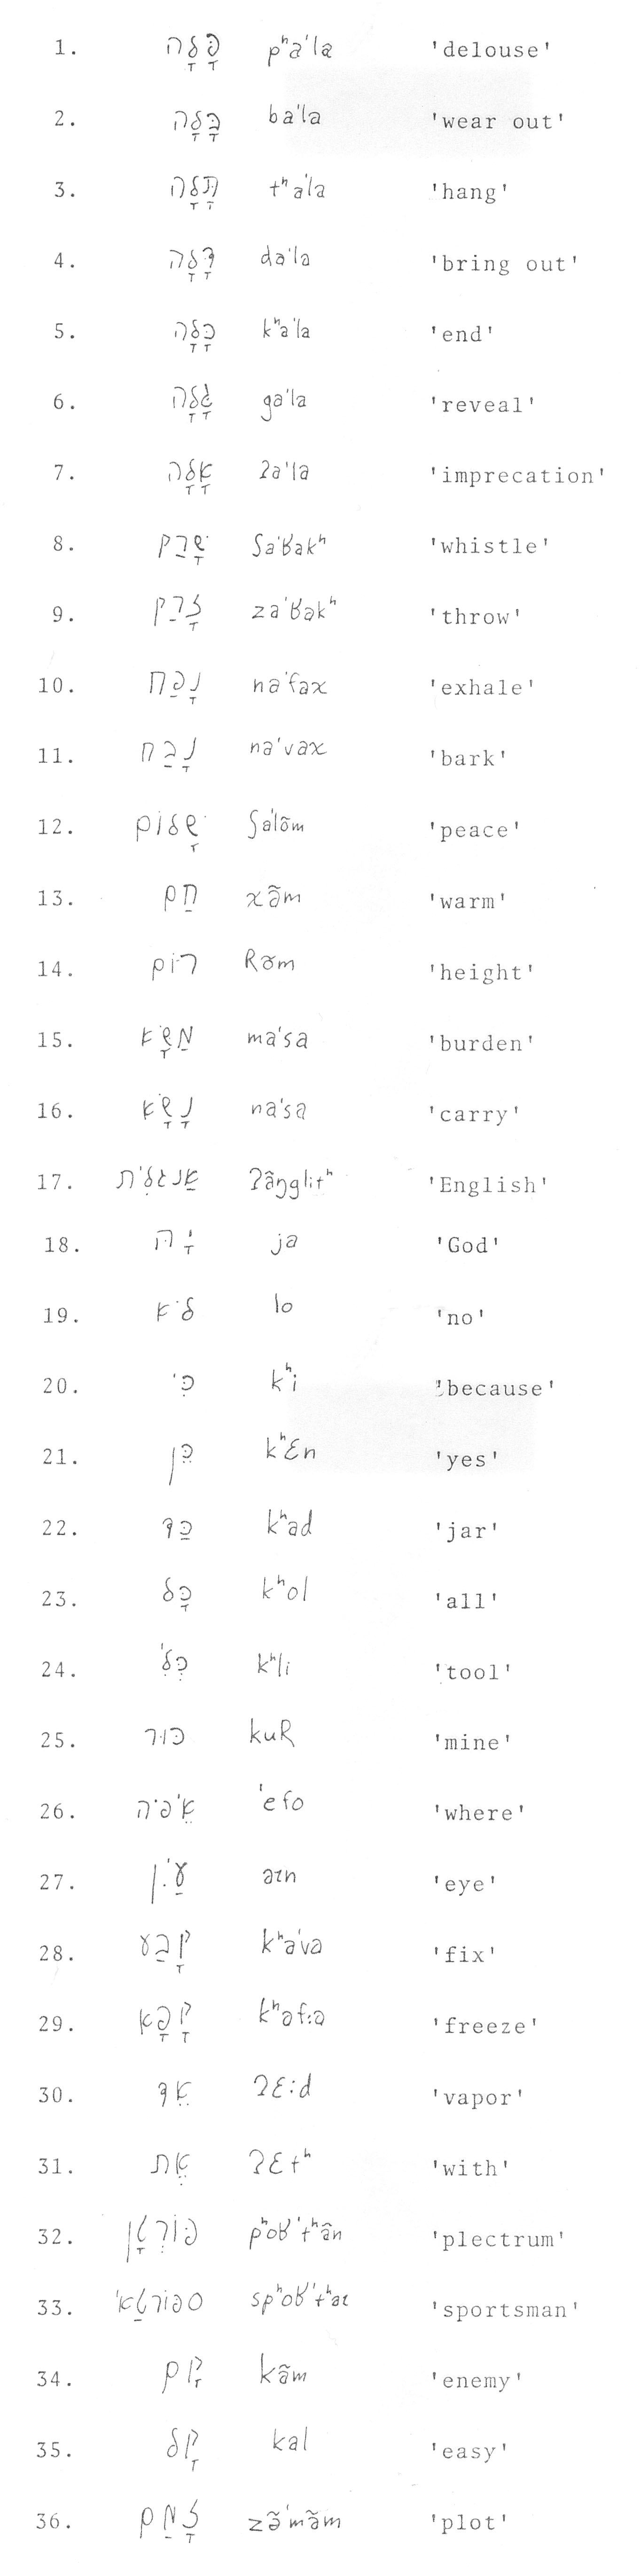 1. פָּלָה pʰa'la 'delouse'
2. בָּלָה ba'la 'wear out'
3. תָּלָה tʰa'la 'hang'
4. דָּלָה da'la 'bring out'
5. כָּלָה kʰa'la 'end'
6. גָּלָה ga'la 'reveal'
7. אָלָה ʔa'la 'imprecation'
8. שָׁרַק ʃa'ʁakʰ 'whistle'
9. זָרַק za'ʁakʰ 'throw'
10. נָפַח na'fax 'exhale'
11. נָבַח na'vax 'bark'
12. שָׁלוֹם ʃa'lõm 'peace'
13. חַם xãm 'warm'
14. רוֹם Rõm 'height'
15. מַשָּׂא ma'sa 'burden'
16. נָשָׂא na'sa 'carry'
17. אַנגלִית ʔãŋglitʰ 'English'
18. יָהּ ja 'God'
19. לֹא lo 'no'
20. כִּי kʰi 'because'
21. כֵּן kʰɛn 'yes'
22. כַּד kʰad 'jar'
23. כָּל kʰol 'all'
24. כְּלִי kʰli 'tool'
25. כּוּר kuR 'mine'
26. אֵיפֹה 'efo 'where'
27. עַיִן aɪn 'eye'
28. קָבַע kʰa'va 'fix'
29. קָפָא kʰaf:a 'freeze'
30. אֵד ʔɛ:d 'vapor'
31. אֵת ʔɛtʰ 'with'
32. פוֹרְטָן pʰoʁ'tʰãn 'plectrum'
33. ספוֹרטַאי spʰoʁ'tʰaɪ 'sportsman'
34. קָם kãm 'enemy'
35. קָל kal 'easy'
36. זָמַם zã'mãm 'plot'